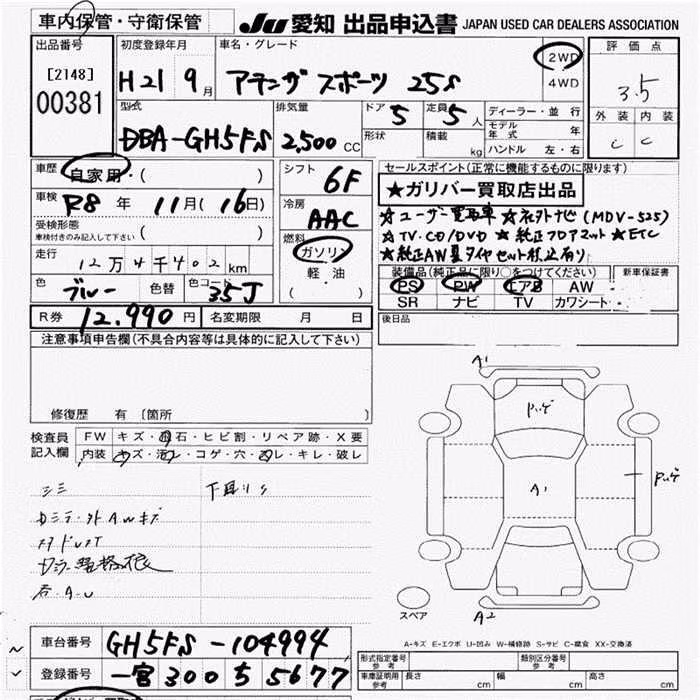 車内保管・守衛保管
JU 愛知 出品申込書 JAPAN USED CAR DEALERS ASSOCIATION
出品番号
[2148]
00381
初度登録年月
H21 9月
車名・グレード
アテンザ スポーツ 25S
2WD
4WD
評価点
3.5
外装 内装
C C
型式
DBA-GH5FS
排気量
2,500 CC
ドア 5
形状
定員 5 人
積載 kg
ディーラー・並行
モデル年式 年
ハンドル 左・右
車歴 自家用・( )
車検 R8 年 11月(16日)
受検形態
車検付きのみ記入して下さい ( )
走行 12万4千402 km
色 ブルー 色替 色コード 35J
シフト 6F
冷房 AAC
燃料
ガソリン
軽・油
( )
R券 12,990 円 名変期限 月 日
セールスポイント(正常に機能するものに限ります)
★ガリバー買取店出品
☆ユーザー買取車 ☆社外ナビ(MDV-525)
☆TV.CD/DVD ☆純正フロアマット ☆ETC
☆純正AW夏タイヤセット積込有り
装備品(純正品に限り○をつけてください) 新車保証書
PS PW エアB AW・
SR ナビ TV カワシート・
後日品
注意事項申告欄(不具合内容等は具体的に記入して下さい)
修復歴 有 [箇所 ]
検査員記入欄
FW キズ・飛石・ヒビ割・リペア跡・X要
内装 キズ・汚レ・コゲ・穴・スレ・キレ・破レ
下廻りS
A1
A1
A2
スペア
A-キズ E-エクボ U-凹み W-補修跡 S-サビ C-腐食 XX-交換済
車台番号 GH5FS-104994
登録番号 一宮300ち5677
形式指定番号 参考
類別区分番号 参考
車庫証明用 参考 長さ cm 幅 cm 高さ cm